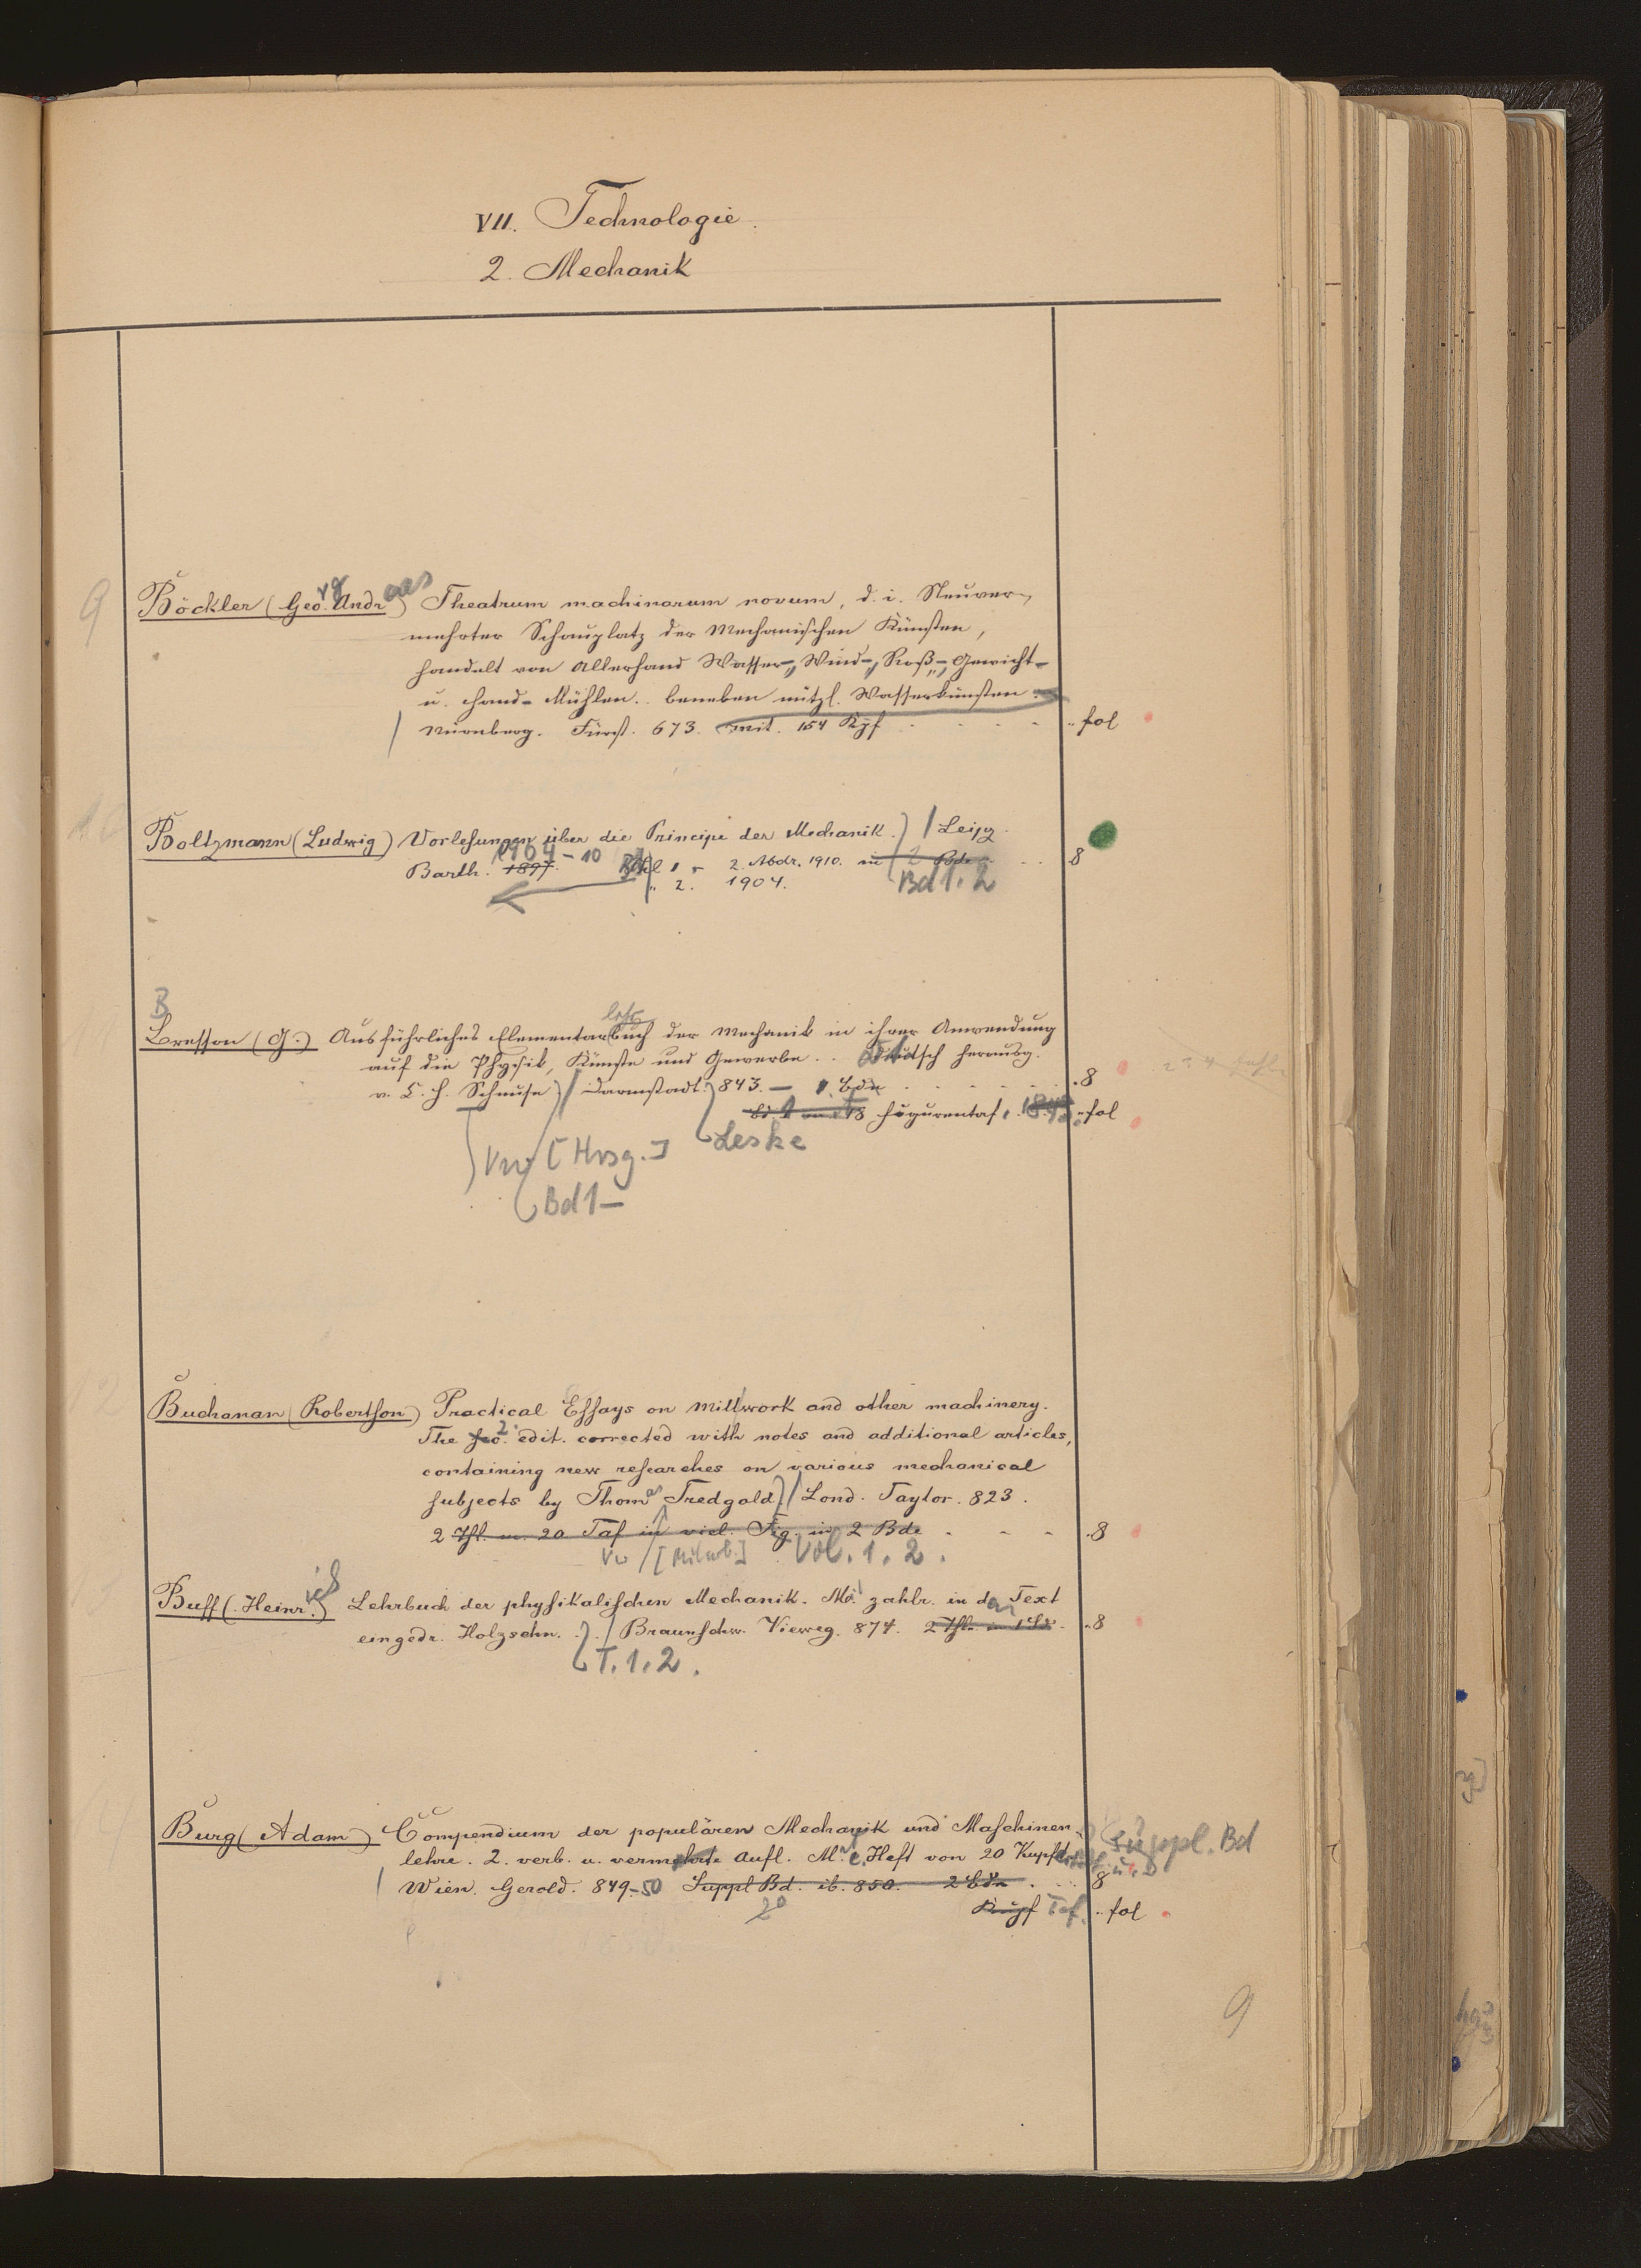 VII. Technologie.
2. Mechanik
9 Böckler (Georg Andreas) Theatrum machinarum novum, d. i. Neuver-
mehrter Schauplatz der Mechanischen Künsten,
handelt von Allerhand Wasser-, Wind-, Roß-, Gewicht-
u. Hand-Mühlen.. beneben nützl. Wasserkünsten.
Nürnberg. Fürst. 673. mit. 154 Kpf .. fol
10 Boltzmann (Ludwig) Vorlesungen über die Principe der Mechanik. / Leipz.
Barth. 1897. 1904-10 Thl 1 - 2. Abdr. 1910. in 2 Bde .. 8
" 2. 1904. Bd 1. 2
B
lehr
Bresson (G.) Ausführliches Elementarbuch der Mechanik in ihrer Anwendung
auf die Physik, Künste und Gewerbe .. Deutsch herausg.
v. C. H. Schnuse / Darmstadt. 843. — 1. Bdn .8
18 Figurentaf. 184 .. fol
Vw [Hrsg.] Leske
Bd 1 —
12 Buchanan (Robertson) Practical Essays on millwork and other machinery.
The sec. 2. edit. corrected with notes and additional articles,
containing new researches on various mechanical
subjects by Thomas Tredgold / Lond. Taylor. 823.
2 Thl. m. 20 Taf in viel. Fig. in 2 Bde .8
Vw [Mitarb.] Vol. 1. 2.
Buff (Heinrich) Lehrbuch der physikalischen Mechanik. Mi zahlr. in den Text
eingedr. Holzschn. / Braunschw. Vieweg. 874. 2 Thl. in 1 Bd. .8
T. 1. 2.
Burg (Adam) Compendium der populären Mechanik und Maschinen-
Suppl. Bd
lehre. 2. verb. u. vermehrte Aufl. M. e. Heft von 20 Kupft
Wien. Gerold. 849-50 Suppl Bd. ib. 850. 2 Bdn .. 8
20 Kupf Taf. .. fol
9